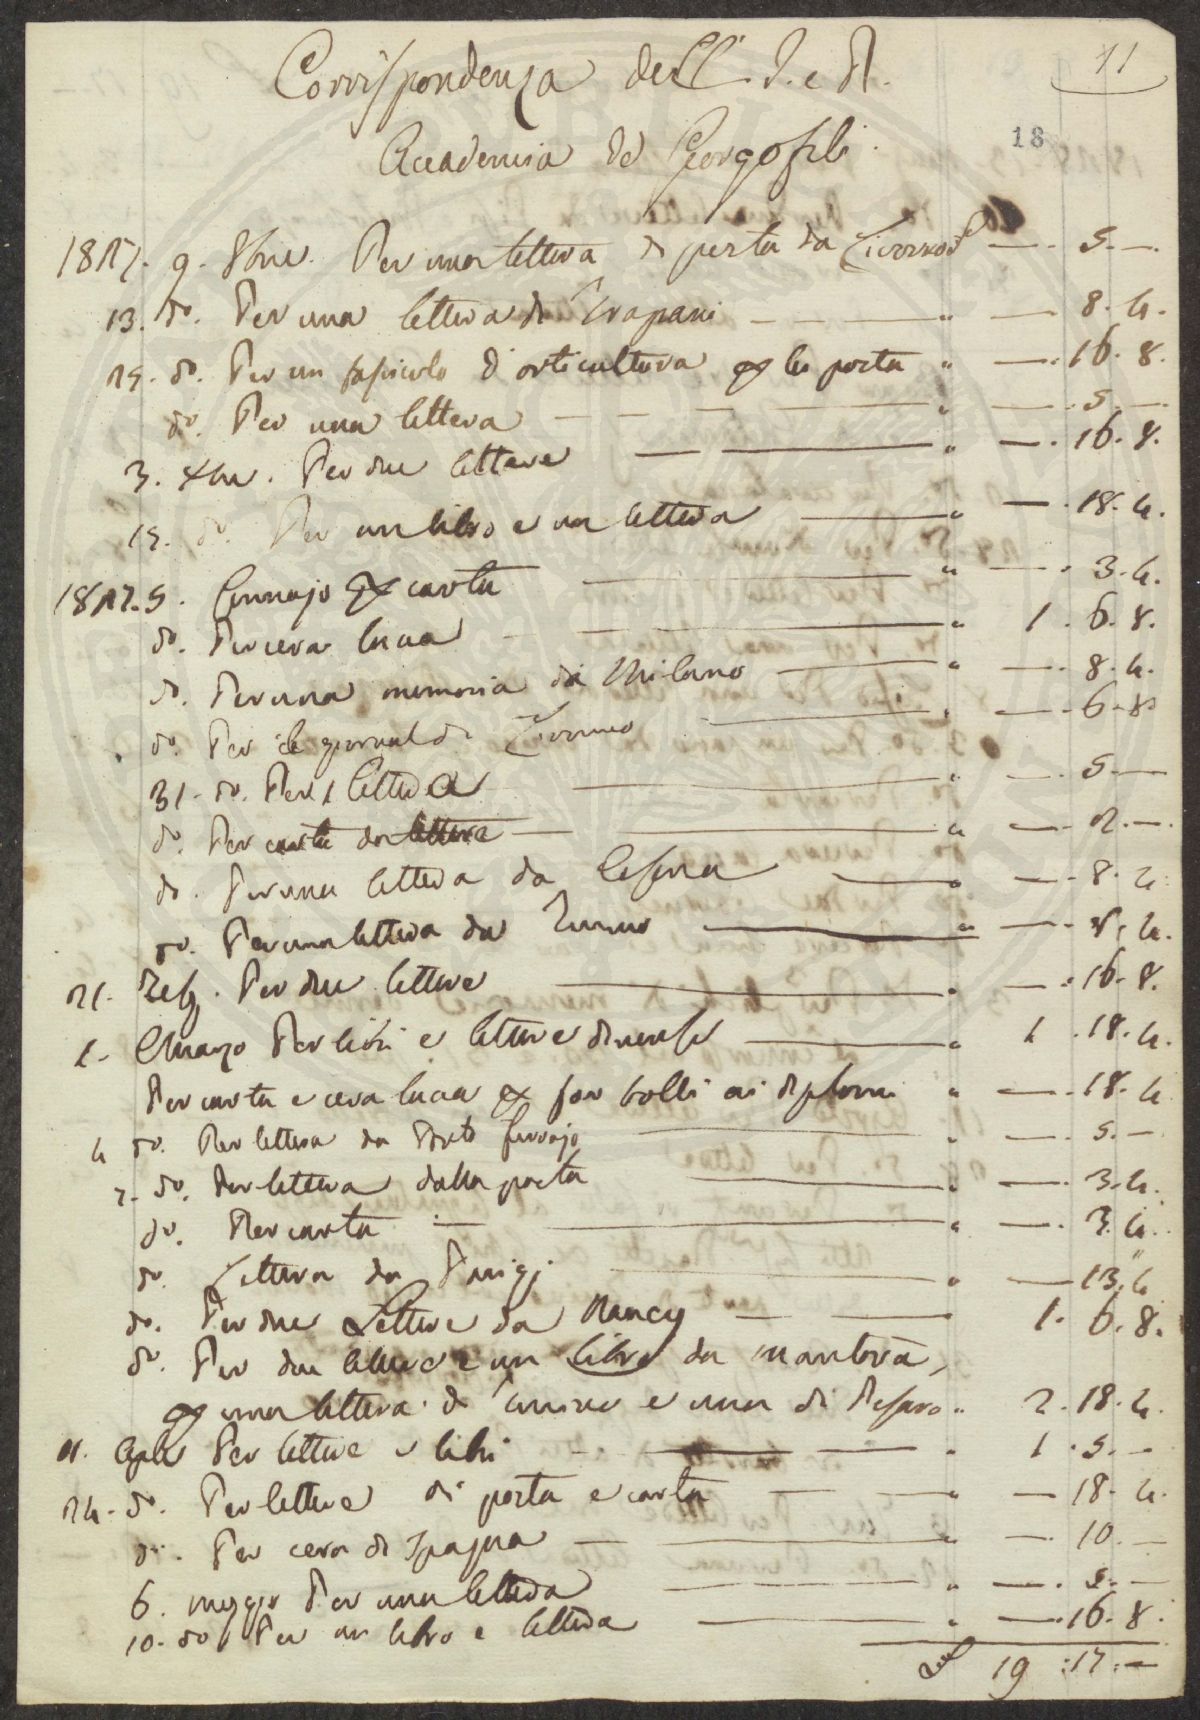 11
Corrispondenza dell' I. e R.
18
Accademia de Georgofili.
9. 8bre. Per una lettera di posta da Livorno £ — 5. —
13. do. Per una lettera di Trapani — " — 8. 4.
do. Per un fascicolo d'orticultura per la posta " — 16. 8.
do. Per una lettera — " — 5. —
3. Xbre. Per due lettere — " — 16. 8.
do. Per un libro e una lettera — " — 18. 4.
5. Gennajo per carta — " — 3. 4.
do. Per cera lacca — " 1. 6. 8.
do. Per una memoria da Milano — " — 8. 4.
do. Per il giornal di Livorno — " — 6. 8
31. do. Per 1 lettera — " — 5. —
do. Per carta da lettere — " — 2. —
do. Per una lettera da Cesena — " — 8. 4
do. Per una lettera da Torino — " — 8. 4.
21. Feb. Per due lettere — " — 16. 8.
1. Marzo Per libri e lettere diverse — " 1. 18. 4.
Per carta e cera lacca per far bolli ai diplomi " — 18. 4
4 do. Per lettera da Porto ferrajo — " — 5. —
do. Per lettera dalla posta — " — 3. 4.
do. Per carta — " — 3. 4.
do. Lettera da Parigi — " — 13. 4
do. Per due Lettere da Nancy — " 1. 6. 8.
do. Per due lettere e un libro da Mantova,
per una lettera di Torino e una di Pesaro " 2. 18. 4.
Aple Per lettere e libri — " 1. 5. —
24. do. Per lettere di posta e carta — " — 18. 4.
do. Per cera di Spagna — " — 10. —
6. maggio Per una lettera — " — 5. —
10. do Per un libro e lettera — " — 16. 8.
£ 19 : 17 : —